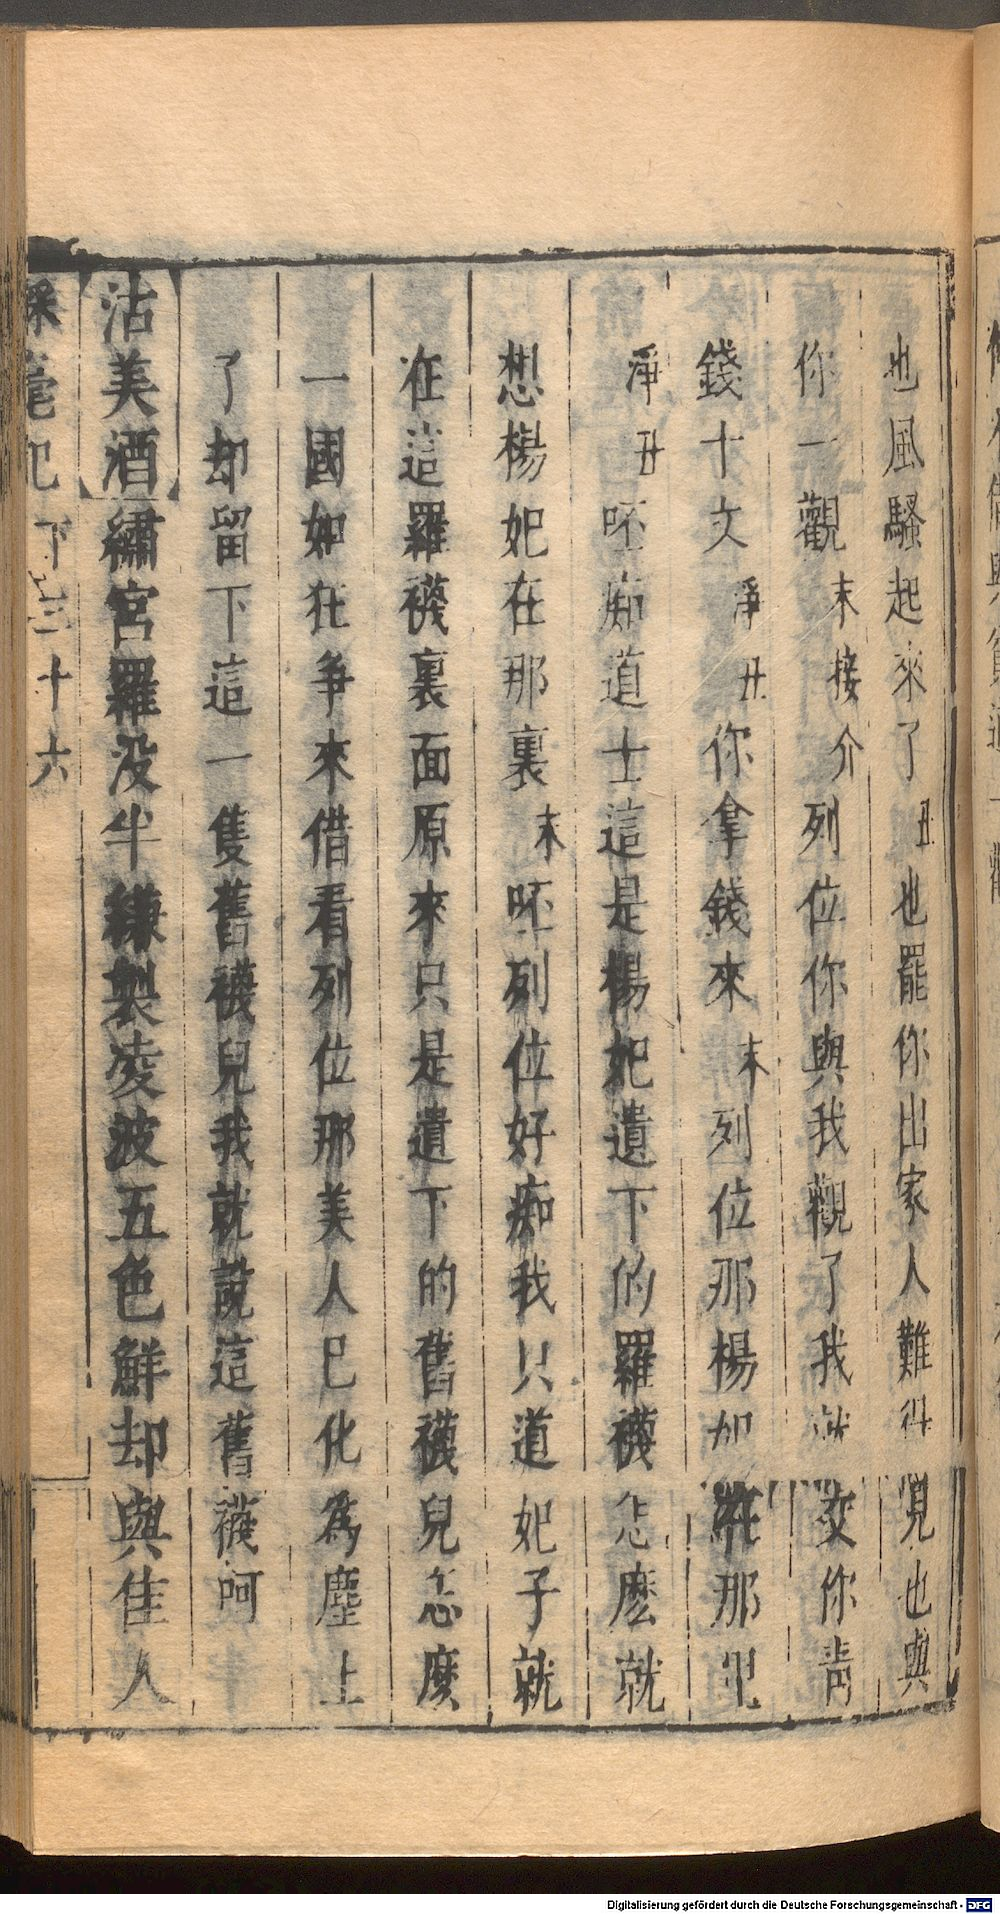 也風騷起來了丑也罷你出家人難得見也與
你一觀末接介列位你與我觀了我就交你青
錢十文淨丑你拿錢來末列位那楊妃在那里
淨丑呸痴道士這是楊妃遺下的羅襪怎麽就
想楊妃在那裏末呸列位好痴我只道妃子就
在這羅襪裏面原來只是遺下的舊襪兒怎麼
一國如狂爭來借看列位那美人已化為塵土
了却留下這一隻舊襪兒我就說這舊襪呵
沽美酒繡宮羅沒半縑製凌波五色鮮却與佳人
彩毫記 下 三十六
Digitalisierung gefördert durch die Deutsche Forschungsgemeinschaft - DFG